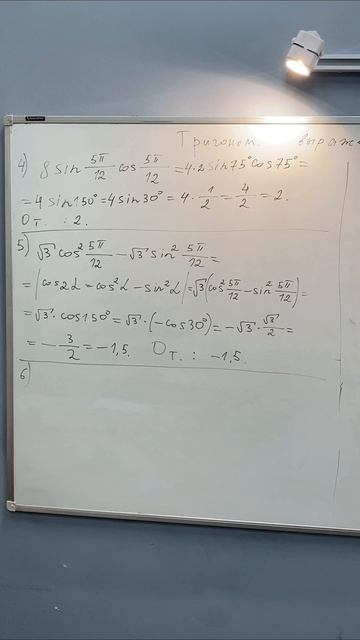 Тригоном выраж
4) 8 sin 5π/12 cos 5π/12 = 4·2 sin75° cos75° =
= 4 sin150° = 4 sin30° = 4 · 1/2 = 4/2 = 2.
От. : 2.
5) √3 cos² 5π/12 − √3 sin² 5π/12 =
= |cos2α = cos²α − sin²α| = √3 (cos² 5π/12 − sin² 5π/12) =
= √3 · cos150° = √3 · (−cos30°) = −√3 · √3/2 =
= − 3/2 = −1,5. От. : −1,5.
6)